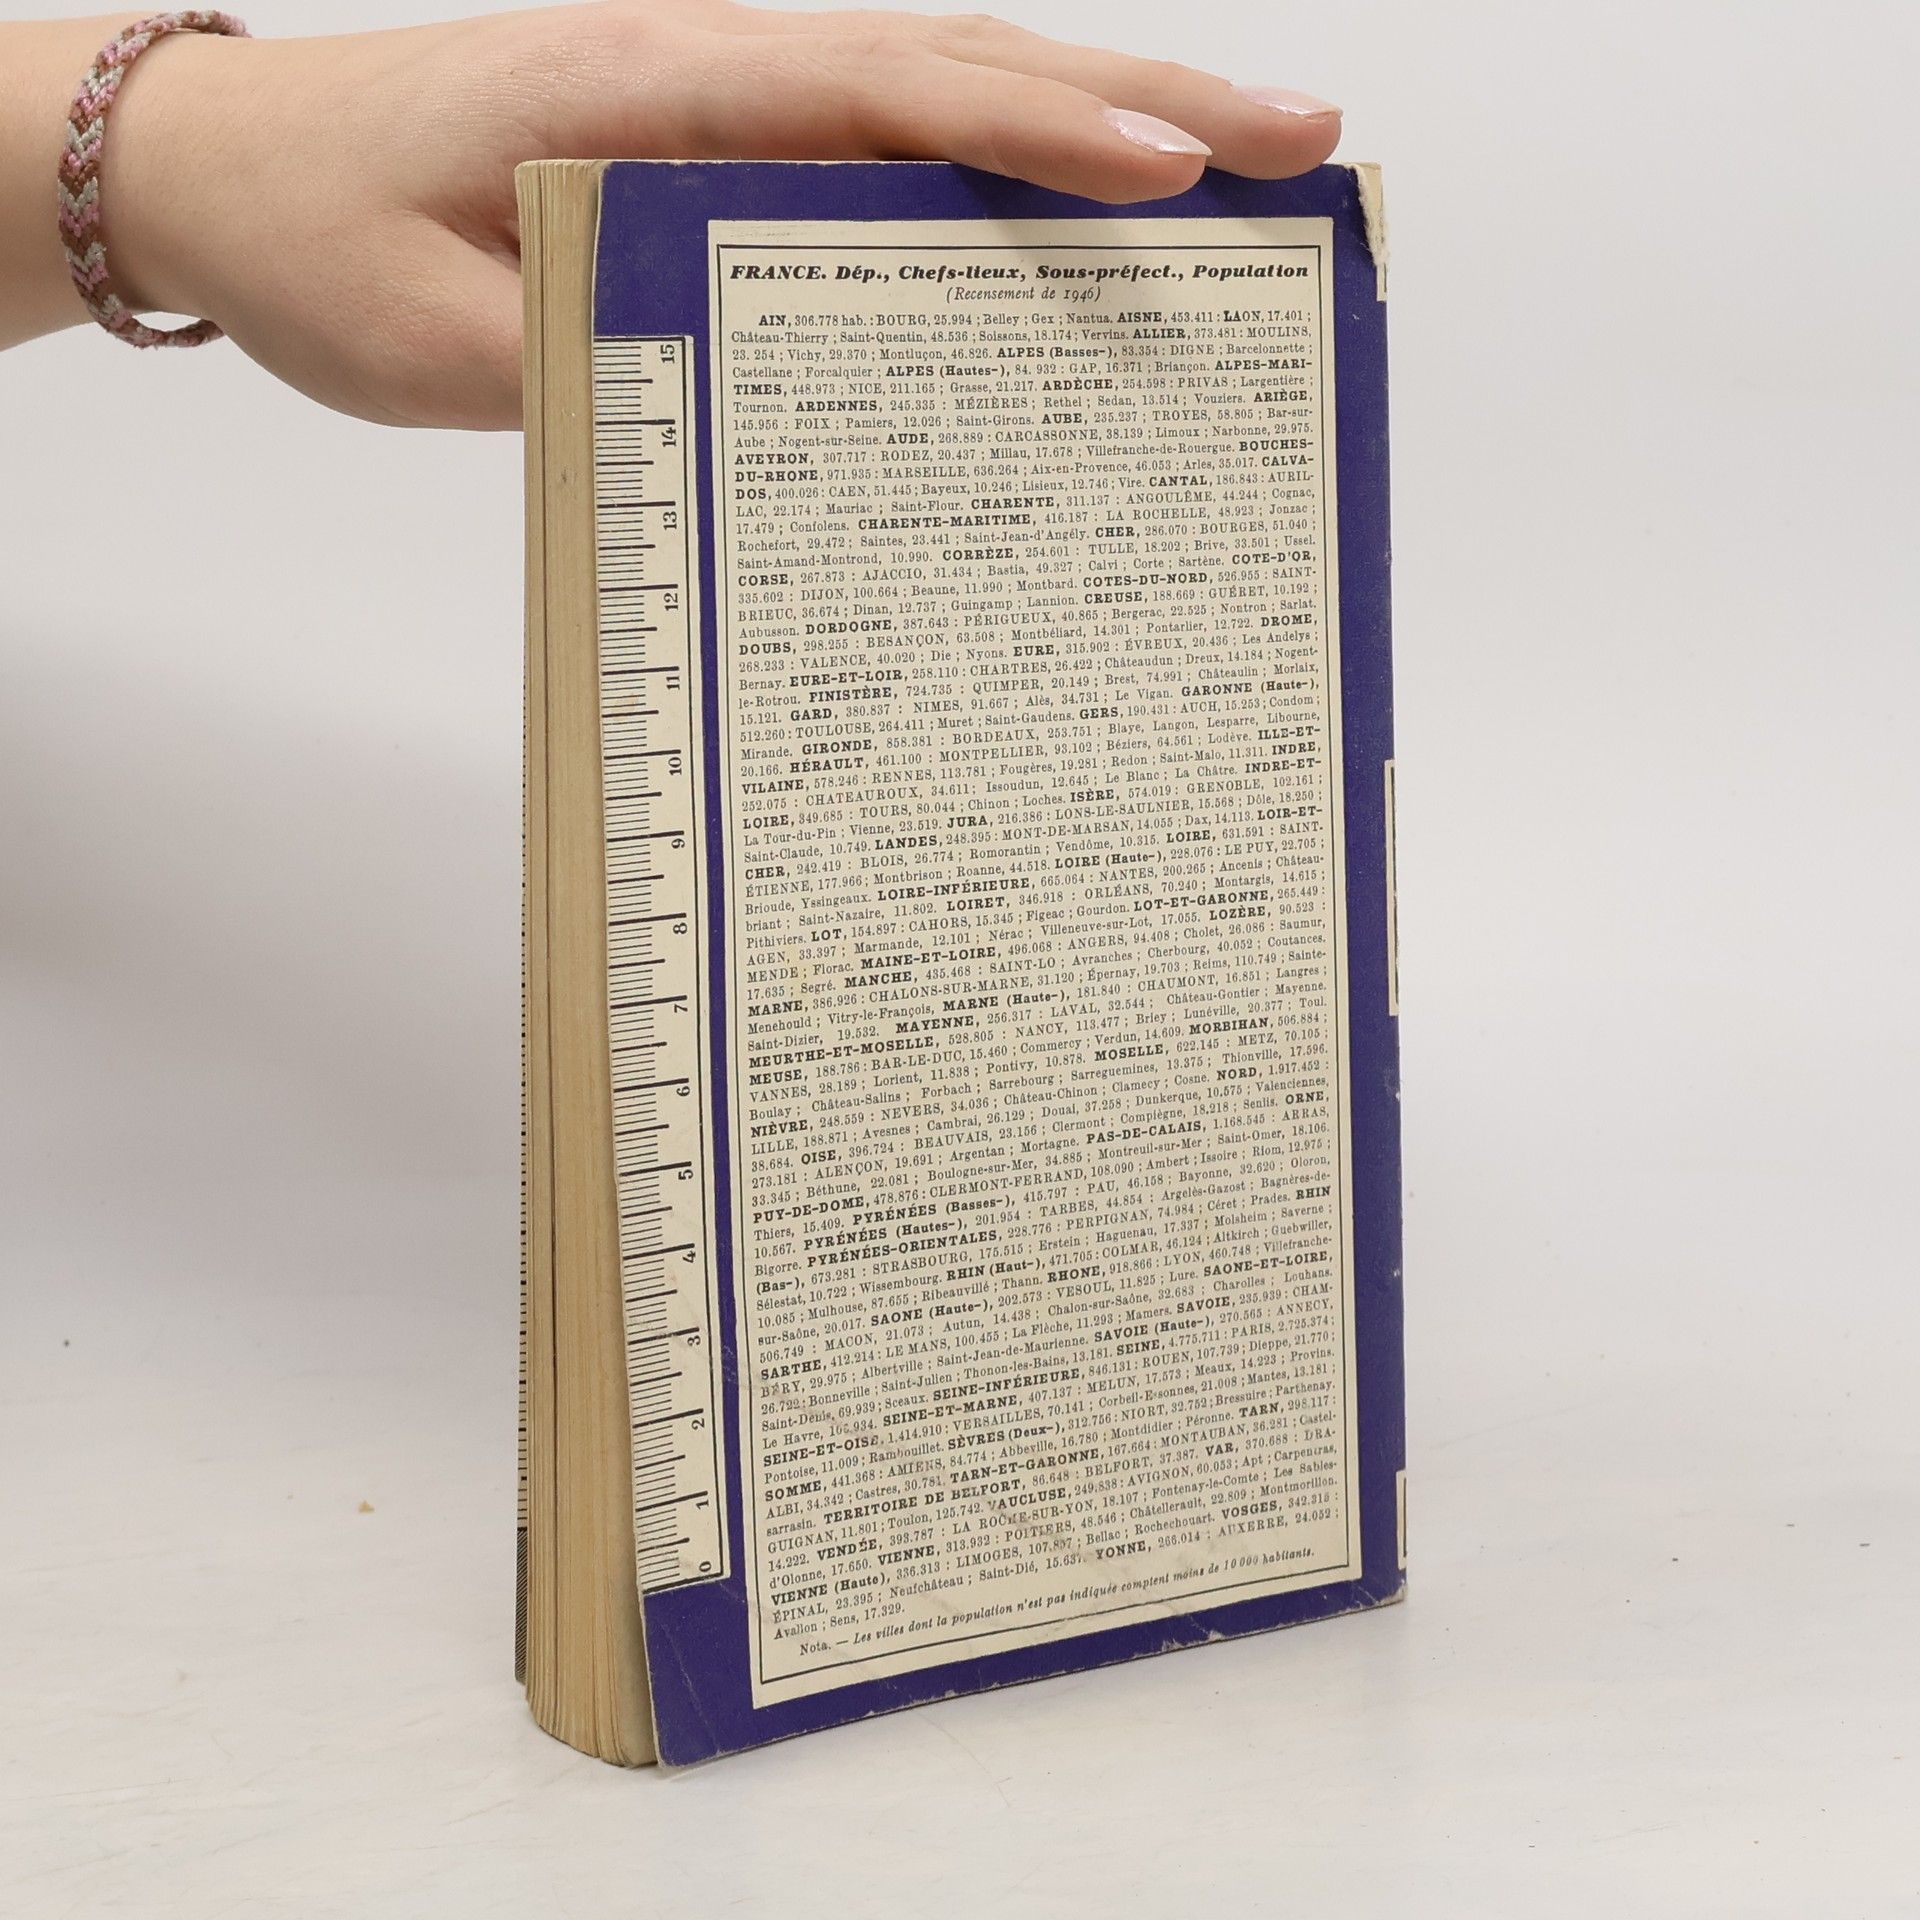 FRANCE. Dép., Chefs-lieux, Sous-préfect., Population
(Recensement de 1946)
AIN, 306.778 hab. : BOURG, 25.994 ; Belley ; Gex ; Nantua. AISNE, 453.411 : LAON, 17.401 ;
Château-Thierry ; Saint-Quentin, 48.536 ; Soissons, 18.174 ; Vervins. ALLIER, 373.481 : MOULINS,
23. 254 ; Vichy, 29.370 ; Montluçon, 46.826. ALPES (Basses-), 83.354 : DIGNE ; Barcelonnette ;
Castellane ; Forcalquier ; ALPES (Hautes-), 84. 932 : GAP, 16.371 ; Briançon. ALPES-MARI-
TIMES, 448.973 ; NICE, 211.165 ; Grasse, 21.217. ARDÈCHE, 254.598 : PRIVAS ; Largentière ;
Tournon. ARDENNES, 245.335 : MÉZIÈRES ; Rethel ; Sedan, 13.514 ; Vouziers. ARIÈGE,
145.956 : FOIX ; Pamiers, 12.026 ; Saint-Girons. AUBE, 235.237 ; TROYES, 58.805 ; Bar-sur-
Aube ; Nogent-sur-Seine. AUDE, 268.889 : CARCASSONNE, 38.139 ; Limoux ; Narbonne, 29.975.
AVEYRON, 307.717 : RODEZ, 20.437 ; Millau, 17.678 ; Villefranche-de-Rouergue. BOUCHES-
DU-RHONE, 971.935 : MARSEILLE, 636.264 ; Aix-en-Provence, 46.053 ; Arles, 35.017. CALVA-
DOS, 400.026 : CAEN, 51.445 ; Bayeux, 10.246 ; Lisieux, 12.746 ; Vire. CANTAL, 186.843 : AURIL-
LAC, 22.174 ; Mauriac ; Saint-Flour. CHARENTE, 311.137 : ANGOULÊME, 44.244 ; Cognac,
17.479 ; Confolens. CHARENTE-MARITIME, 416.187 : LA ROCHELLE, 48.923 ; Jonzac ;
Rochefort, 29.472 ; Saintes, 23.441 ; Saint-Jean-d'Angély. CHER, 286.070 : BOURGES, 51.040 ;
Saint-Amand-Montrond, 10.990. CORRÈZE, 254.601 : TULLE, 18.202 ; Brive, 33.501 ; Ussel.
CORSE, 267.873 : AJACCIO, 31.434 ; Bastia, 49.327 ; Calvi ; Corte ; Sartène. COTE-D'OR,
335.602 : DIJON, 100.664 ; Beaune, 11.990 ; Montbard. COTES-DU-NORD, 526.955 : SAINT-
BRIEUC, 36.674 ; Dinan, 12.737 ; Guingamp ; Lannion. CREUSE, 188.669 : GUÉRET, 10.192 ;
Aubusson. DORDOGNE, 387.643 : PÉRIGUEUX, 40.865 ; Bergerac, 22.525 ; Nontron ; Sarlat.
DOUBS, 298.255 : BESANÇON, 63.508 ; Montbéliard, 14.301 ; Pontarlier, 12.722. DROME,
268.233 : VALENCE, 40.020 ; Die ; Nyons. EURE, 315.902 : ÉVREUX, 20.436 ; Les Andelys ;
Bernay. EURE-ET-LOIR, 258.110 : CHARTRES, 26.422 ; Châteaudun ; Dreux, 14.184 ; Nogent-
le-Rotrou. FINISTÈRE, 724.735 : QUIMPER, 20.149 ; Brest, 74.991 ; Châteaulin ; Morlaix,
15.121. GARD, 380.837 : NIMES, 91.667 ; Alès, 34.731 ; Le Vigan. GARONNE (Haute-),
512.260 : TOULOUSE, 264.411 ; Muret ; Saint-Gaudens. GERS, 190.431 : AUCH, 15.253 ; Condom ;
Mirande. GIRONDE, 858.381 : BORDEAUX, 253.751 ; Blaye, Langon, Lesparre, Libourne,
20.166. HÉRAULT, 461.100 : MONTPELLIER, 93.102 ; Béziers, 64.561 ; Lodève. ILLE-ET-
VILAINE, 578.246 : RENNES, 113.781 ; Fougères, 19.281 ; Redon ; Saint-Malo, 11.311. INDRE,
252.075 : CHATEAUROUX, 34.611 ; Issoudun, 12.645 ; Le Blanc ; La Châtre. INDRE-ET-
LOIRE, 349.685 : TOURS, 80.044 ; Chinon ; Loches. ISÈRE, 574.019 : GRENOBLE, 102.161 ;
La Tour-du-Pin ; Vienne, 23.519. JURA, 216.386 : LONS-LE-SAULNIER, 15.568 ; Dôle, 18.250 ;
Saint-Claude, 10.749. LANDES, 248.395 : MONT-DE-MARSAN, 14.055 ; Dax, 14.113. LOIR-ET-
CHER, 242.419 : BLOIS, 26.774 ; Romorantin ; Vendôme, 10.315. LOIRE, 631.591 : SAINT-
ÉTIENNE, 177.966 ; Montbrison ; Roanne, 44.518. LOIRE (Haute-), 228.076 : LE PUY, 22.705 ;
Brioude, Yssingeaux. LOIRE-INFÉRIEURE, 665.064 : NANTES, 200.265 ; Ancenis ; Château-
briant ; Saint-Nazaire, 11.802. LOIRET, 346.918 : ORLÉANS, 70.240 ; Montargis, 14.615 ;
Pithiviers. LOT, 154.897 : CAHORS, 15.345 ; Figeac ; Gourdon. LOT-ET-GARONNE, 265.449 :
AGEN, 33.397 ; Marmande, 12.101 ; Nérac ; Villeneuve-sur-Lot, 17.055. LOZÈRE, 90.523 :
MENDE ; Florac. MAINE-ET-LOIRE, 496.068 : ANGERS, 94.408 ; Cholet, 26.086 : Saumur,
17.635 ; Segré. MANCHE, 435.468 : SAINT-LO ; Avranches ; Cherbourg, 40.052 ; Coutances.
MARNE, 386.926 : CHALONS-SUR-MARNE, 31.120 ; Épernay, 19.703 ; Reims, 110.749 ; Sainte-
Menehould ; Vitry-le-François, MARNE (Haute-), 181.840 : CHAUMONT, 16.851 ; Langres ;
Saint-Dizier, 19.532. MAYENNE, 256.317 : LAVAL, 32.544 ; Château-Gontier ; Mayenne.
MEURTHE-ET-MOSELLE, 528.805 : NANCY, 113.477 ; Briey ; Lunéville, 20.377 ; Toul.
MEUSE, 188.786 : BAR-LE-DUC, 15.460 ; Commercy ; Verdun, 14.609. MORBIHAN, 506.884 ;
VANNES, 28.189 ; Lorient, 11.838 ; Pontivy, 10.878. MOSELLE, 622.145 : METZ, 70.105 ;
Boulay ; Château-Salins ; Forbach ; Sarrebourg ; Sarreguemines, 13.375 ; Thionville, 17.596.
NIÈVRE, 248.559 : NEVERS, 34.036 ; Château-Chinon ; Clamecy ; Cosne. NORD, 1.917.452 :
LILLE, 188.871 ; Avesnes ; Cambrai, 26.129 ; Douai, 37.258 ; Dunkerque, 10.575 ; Valenciennes,
38.684. OISE, 396.724 : BEAUVAIS, 23.156 ; Clermont ; Compiègne, 18.218 ; Senlis. ORNE,
273.181 : ALENÇON, 19.691 ; Argentan ; Mortagne. PAS-DE-CALAIS, 1.168.545 : ARRAS,
33.345 ; Béthune, 22.081 ; Boulogne-sur-Mer, 34.885 ; Montreuil-sur-Mer ; Saint-Omer, 18.106.
PUY-DE-DOME, 478.876 : CLERMONT-FERRAND, 108.090 ; Ambert ; Issoire ; Riom, 12.975 ;
Thiers, 15.409. PYRÉNÉES (Basses-), 415.797 : PAU, 46.158 ; Bayonne, 32.620 ; Oloron,
10.567. PYRÉNÉES (Hautes-), 201.954 : TARBES, 44.854 ; Argelès-Gazost ; Bagnères-de-
Bigorre. PYRÉNÉES-ORIENTALES, 228.776 : PERPIGNAN, 74.984 ; Céret ; Prades. RHIN
(Bas-), 673.281 : STRASBOURG, 175.515 ; Erstein ; Haguenau, 17.337 ; Molsheim ; Saverne ;
Sélestat, 10.722 ; Wissembourg. RHIN (Haut-), 471.705 : COLMAR, 46.124 ; Altkirch ; Guebwiller,
10.085 ; Mulhouse, 87.655 ; Ribeauvillé ; Thann. RHONE, 918.866 : LYON, 460.748 ; Villefranche-
sur-Saône, 20.017. SAONE (Haute-), 202.573 : VESOUL, 11.825 ; Lure. SAONE-ET-LOIRE,
506.749 : MACON, 21.073 ; Autun, 14.438 ; Chalon-sur-Saône, 32.683 ; Charolles ; Louhans.
SARTHE, 412.214 : LE MANS, 100.455 ; La Flèche, 11.293 ; Mamers. SAVOIE, 235.939 : CHAM-
BÉRY, 29.975 ; Albertville ; Saint-Jean-de-Maurienne. SAVOIE (Haute-), 270.565 : ANNECY,
26.722 ; Bonneville ; Saint-Julien ; Thonon-les-Bains, 13.181. SEINE, 4.775.711 : PARIS, 2.725.374 ;
Saint-Denis, 69.939 ; Sceaux. SEINE-INFÉRIEURE, 846.131 : ROUEN, 107.739 ; Dieppe, 21.770 ;
Le Havre, 106.934. SEINE-ET-MARNE, 407.137 : MELUN, 17.573 ; Meaux, 14.223 ; Provins.
SEINE-ET-OISE, 1.414.910 : VERSAILLES, 70.141 ; Corbeil-Essonnes, 21.008 ; Mantes, 13.181 ;
Pontoise, 11.009 ; Rambouillet. SÈVRES (Deux-), 312.756 : NIORT, 32.752 ; Bressuire ; Parthenay.
SOMME, 441.368 : AMIENS, 84.774 ; Abbeville, 16.780 ; Montdidier ; Péronne. TARN, 298.117 :
ALBI, 34.342 ; Castres, 30.781. TARN-ET-GARONNE, 167.664 : MONTAUBAN, 36.281 ; Castel-
sarrasin. TERRITOIRE DE BELFORT, 86.648 : BELFORT, 37.387. VAR, 370.688 : DRA-
GUIGNAN, 11.801 ; Toulon, 125.742. VAUCLUSE, 249.838 : AVIGNON, 60.053 ; Apt ; Carpentras,
14.222. VENDÉE, 393.787 : LA ROCHE-SUR-YON, 18.107 ; Fontenay-le-Comte ; Les Sables-
d'Olonne, 17.650. VIENNE, 313.932 : POITIERS, 48.546 ; Châtellerault, 22.809 ; Montmorillon.
VIENNE (Haute), 336.313 : LIMOGES, 107.857 ; Bellac ; Rochechouart. VOSGES, 342.315 :
ÉPINAL, 23.395 ; Neufchâteau ; Saint-Dié, 15.637. YONNE, 266.014 : AUXERRE, 24.052 ;
Avallon ; Sens, 17.329.
Nota. — Les villes dont la population n'est pas indiquée comptent moins de 10 000 habitants.
15
14
13
12
11
10
9
8
7
6
5
4
3
2
1
0